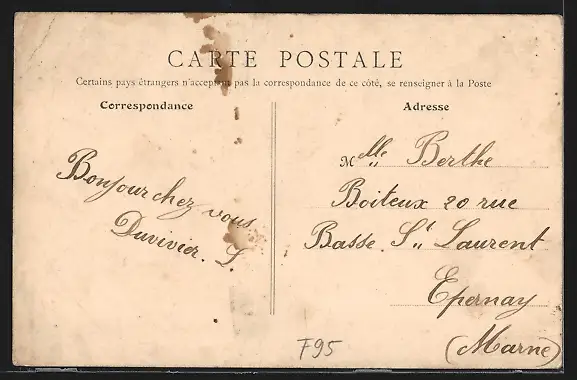 CARTE POSTALE
Certains pays étrangers n'acceptent pas la correspondance de ce côté, se renseigner à la Poste
Correspondance
Bonjour chez vous
Duvivier. L.
Adresse
Melle Berthe
Boiteux 20 rue
Basse St Laurent
Epernay
(Marne)
F95